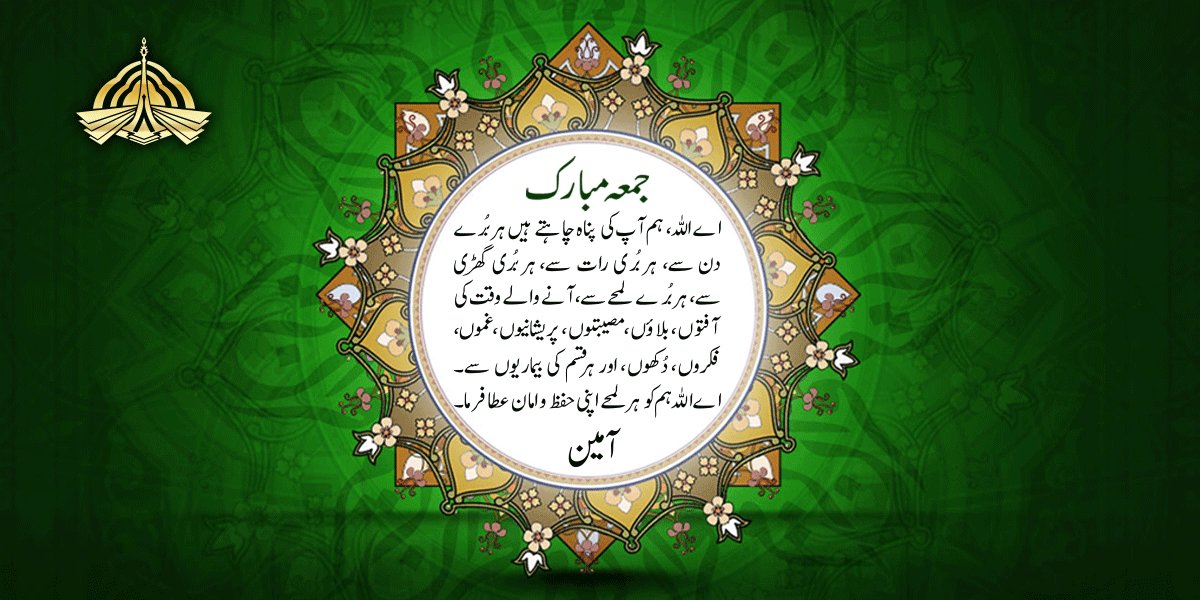 جمعہ مبارک
اے اللہ، ہم آپ کی پناہ چاہتے ہیں ہر بُرے
دن سے، ہر بُری رات سے، ہر بُری گھڑی
سے، ہر بُرے لمحے سے، آنے والے وقت کی
آفتوں، بلاؤں، مصیبتوں، پریشانیوں، غموں،
فکروں، دُکھوں، اور ہر قسم کی بیماریوں سے۔
اے اللہ ہم کو ہر لمحے اپنی حفظ و امان عطا فرما۔
آمین